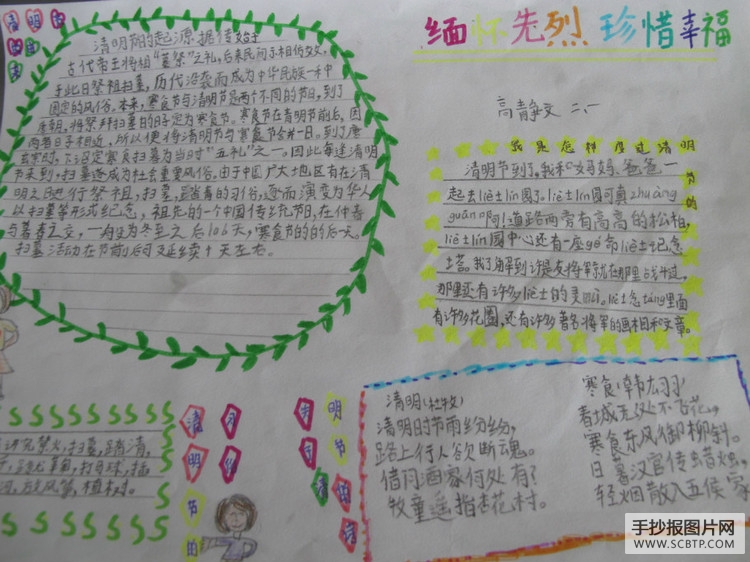 清明节
缅怀先烈 珍惜幸福
高静文 二、一
清明节的起源,据传始于
古代帝王将相“墓祭”之礼,后来民间亦相仿效,
于此日祭祖扫墓,历代沿袭而成为中华民族一种
固定的风俗。本来,寒食节与清明节是两个不同的节日,到了
唐朝,将祭拜扫墓的日子定为寒食节。寒食节在清明节前后,因
两者日子相近,所以便将清明节与寒食节合并一日。到了唐
玄宗时,下诏定寒食扫墓为当时“五礼”之一。因此每逢清明
节来到,扫墓遂成为社会重要风俗。由于中国广大地区有在清
明之日进行祭祖,扫墓,踏青的习俗,逐而演变为华人
以扫墓等形式纪念,祖先的一个中国传统节日,在仲春
与暮春之交,一般为冬至之后106天,寒食节的的后一天。
扫墓活动在节前后可延续十天左右。
我是怎样度过清明
节的
清明节到了,我和妈妈、爸爸一
起去liè士lín园了。liè士lín园可真zhuāng
guān啊!道路两旁有高高的松柏,
liè士lín园中心还有一座gé命liè士纪念
塔。我了解到许是友将军就在那里战斗过,
那里还有许多liè士的灵mù。liè士念táng里面
有许多花圈,还有许多著名将军的画相和文章。
清明(杜牧)
清明时节雨纷纷,
路上行人欲断魂。
借问酒家何处有?
牧童遥指杏花村。
寒食(韩翃)
春城无处不飞花,
寒食东风御柳斜。
日暮汉宫传蜡烛,
轻烟散入五侯家
讲究禁火,扫墓,踏清,
放风筝,植树。
清明
节的
清明节
手抄报图片网
WWW.SCBTP.COM